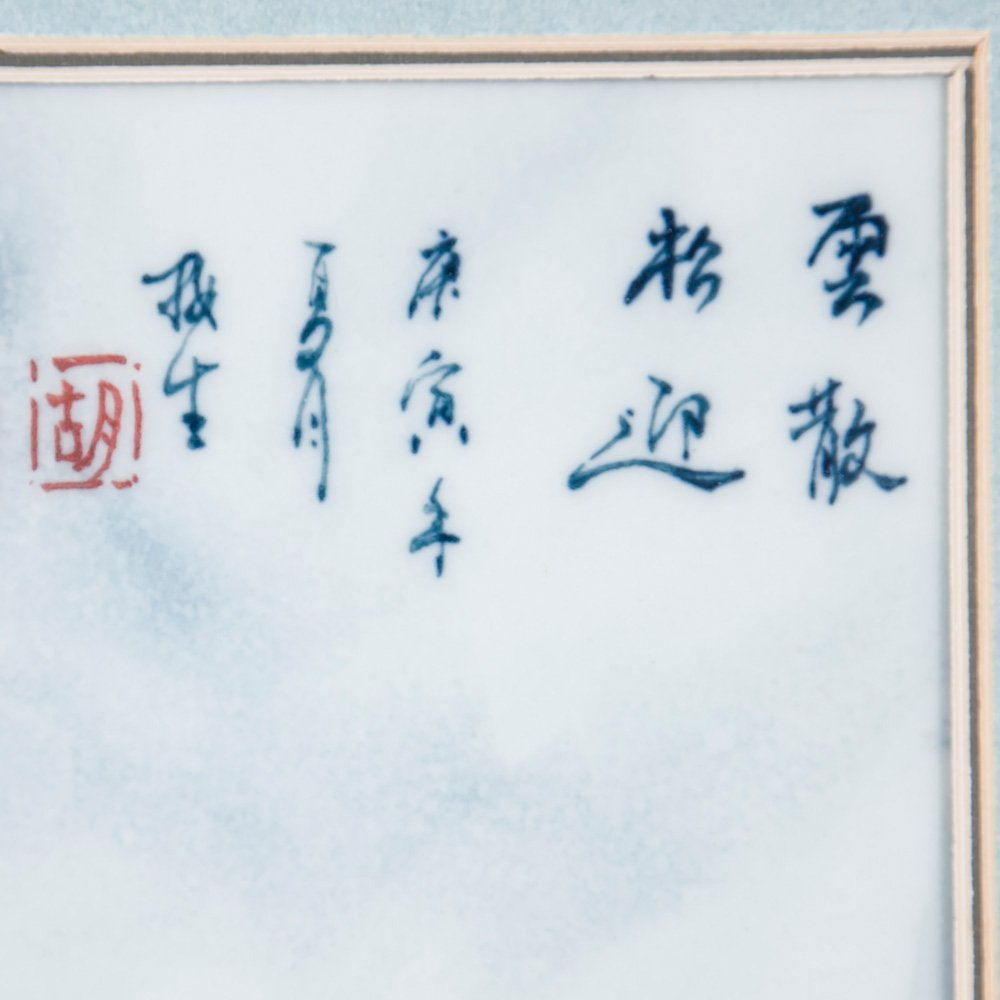 雲散
松迎
庚寅年
夏月
生
胡